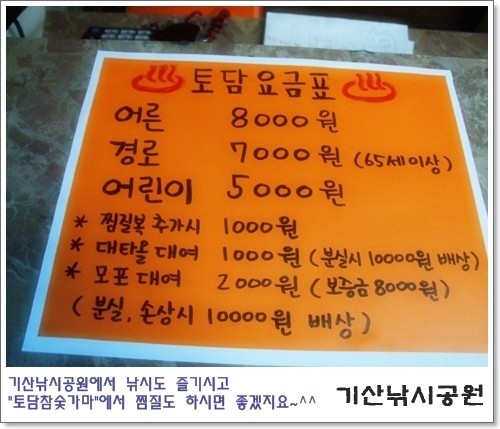 ♨ 토담요금표 ♨
어른 8000원
경로 7000원 (65세이상)
어린이 5000원
* 찜질복 추가시 1000원
* 대타올 대여 1000원 (분실시 10000원 배상)
* 모포 대여 2000원 (보증금 8000원)
(분실, 손상시 10000원 배상)
기산낚시공원에서 낚시도 즐기시고
"토담참숯가마"에서 찜질도 하시면 좋겠지요~^^
기산낚시공원